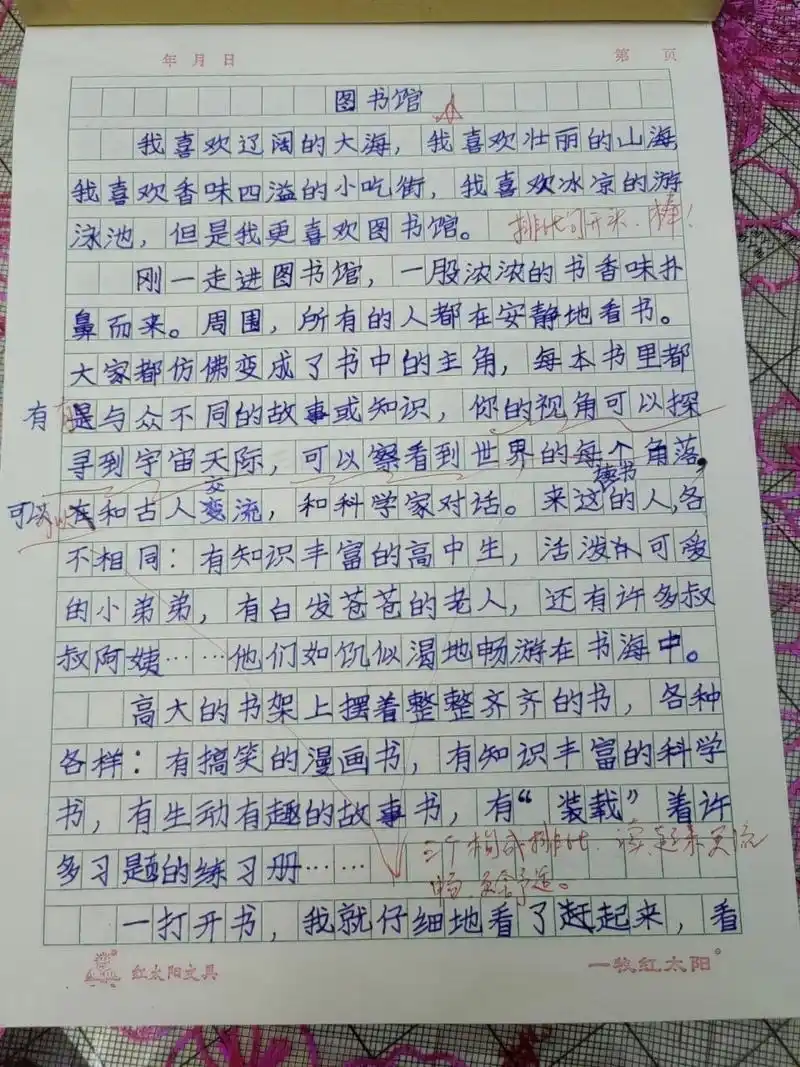 年 月 日 第 页
图书馆
我喜欢辽阔的大海，我喜欢壮丽的山海
我喜欢香味四溢的小吃街，我喜欢冰凉的游
泳池，但是我更喜欢图书馆。 排比句开头，棒！
刚一走进图书馆，一股浓浓的书香味扑
鼻而来。周围，所有的人都在安静地看书。
大家都仿佛变成了书中的主角，每本书里都
有 是与众不同的故事或知识，你的视角可以探
寻到宇宙天际，可以察看到世界的每个角落，
可以 在和古人变流，和科学家对话。来这的人，各
交
读书
不相同：有知识丰富的高中生，活泼可爱
的小弟弟，有白发苍苍的老人，还有许多叔
叔阿姨……他们如饥似渴地畅游在书海中。
高大的书架上摆着整整齐齐的书，各种
各样：有搞笑的漫画书，有知识丰富的科学
书，有生动有趣的故事书，有“装载”着许
多习题的练习册……
三个构成排比，读起来更流
畅
一打开书，我就仔细地看了赶起来，看
红太阳文具 一牧红太阳